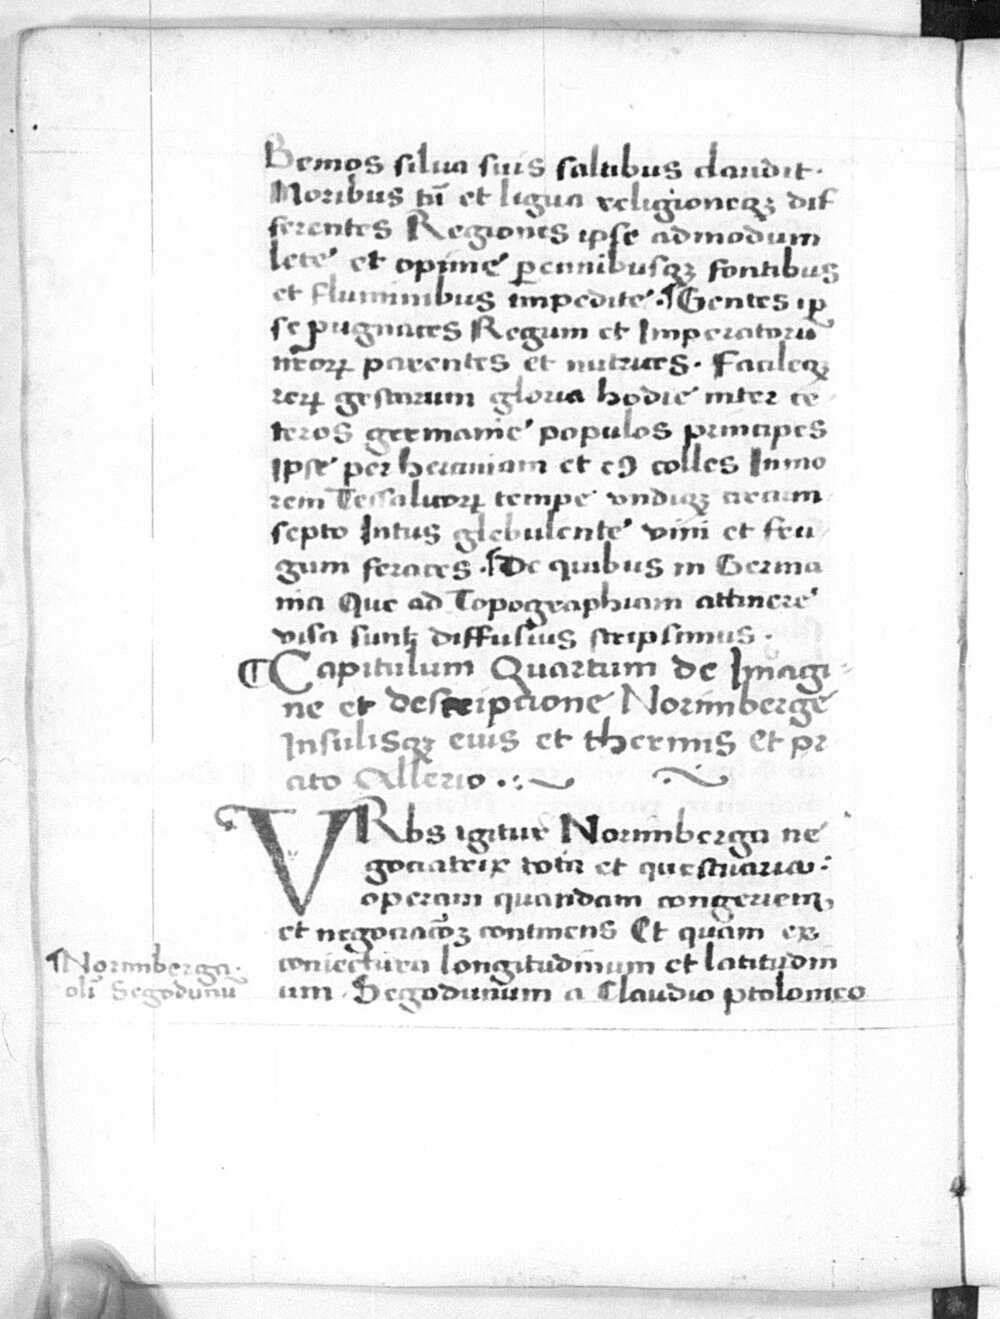 Bemos silua suis saltibus claudit·
Moribus tn̄ et ligua religioneqꝫ dif
ferentes Regiones ipse admodum
lete et opime ꝑennibusqꝫ fontibus
et fluminibus impedite·¶Gentes ip
se pugnaces Regum et Imperatorū
nr̄oꝝ parentes et nutrices· Facileqꝫ
reꝝ gestarum gloria hodie inter ce
teros germanie populos principes
ipse per heraniam et eꝰ colles In mo
rem Tessalicoꝝ tempe vndiqꝫ circum
septo Intus glebulente vini et fru
gum feraces·¶De quibus in Germa
nia Que ad Topographiam attinere
visa sunt diffusius scripsimus·
¶Capitulum Quartum de Imagi
ne et descriptione Norimberge
Insulisqꝫ eius et thermis Et pr
ato Allerio
VRbs igitur Norimberga ne
gociatrix et questuaria
operam quandam congeriem,
et negociacōꝫ continens Et quam ex
coniectura longitudinum et latitudin
um Segodunum a Claudio ptolomeo
¶Norimberga·
oli Segodunū